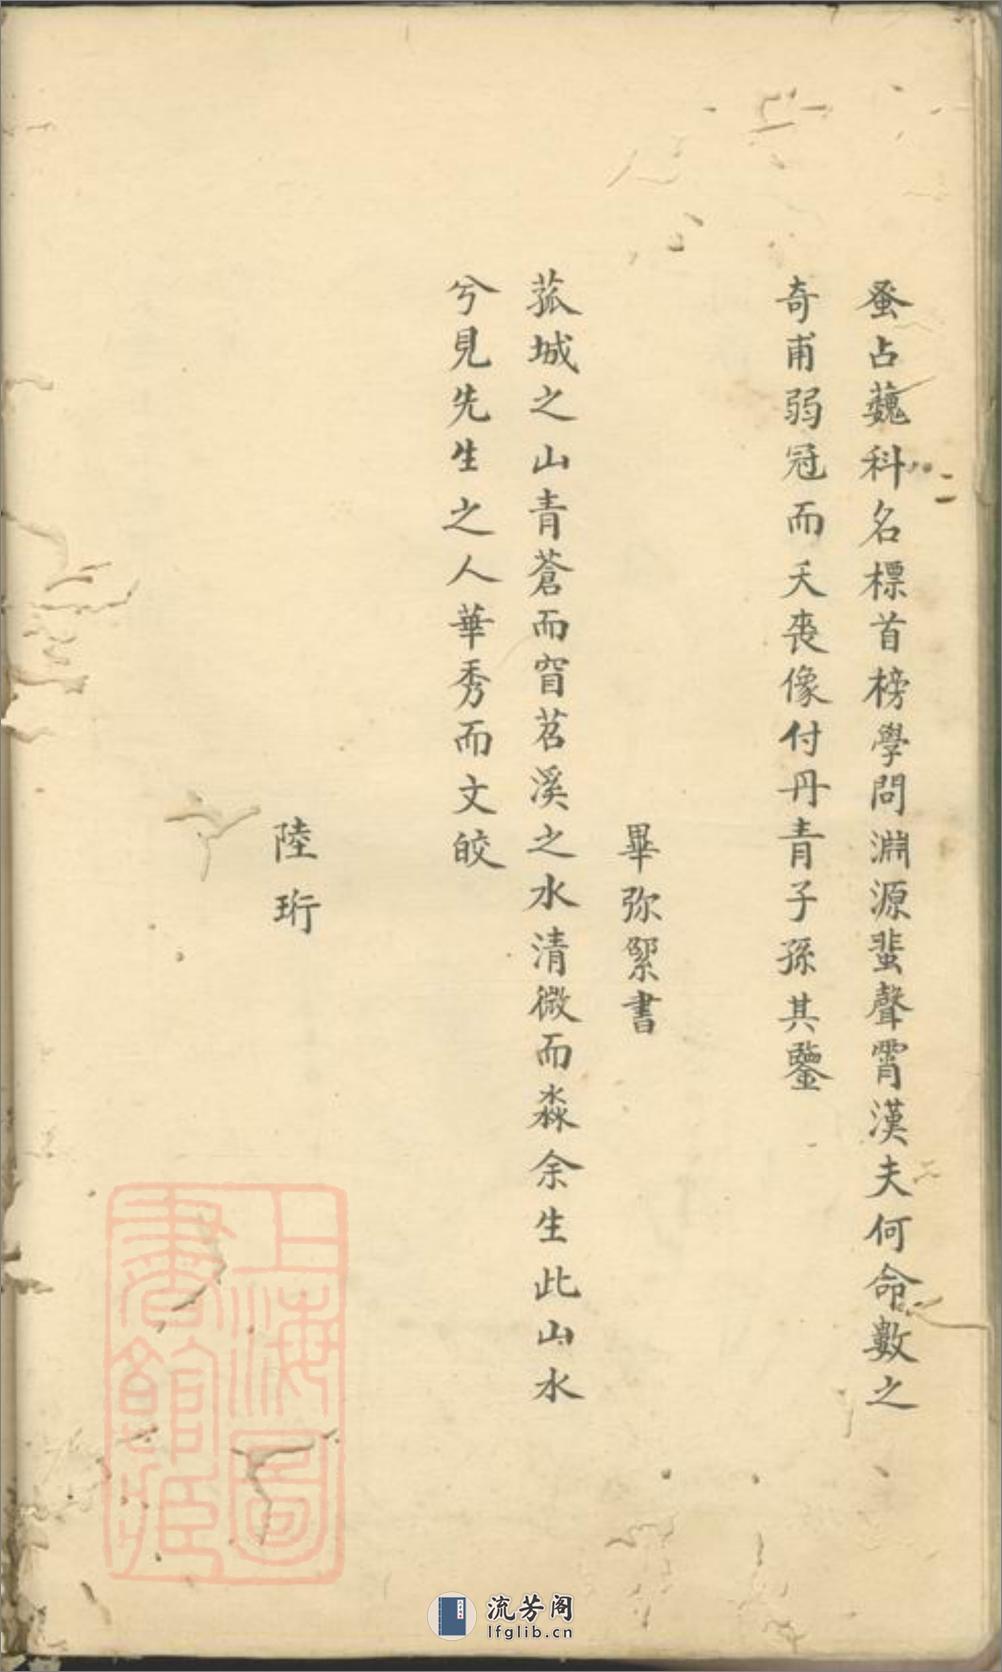 蚤占巍科名標首榜學問淵源蜚聲霄漢夫何命數之
奇甫弱冠而夭喪像付丹青子孫其鑒
畢弥綮書
菰城之山青蒼而窅苕溪之水清微而淼余生此山水
兮見先生之人華秀而文皎
陸珩
上海圖
書館藏
流芳阁
lfglib.cn